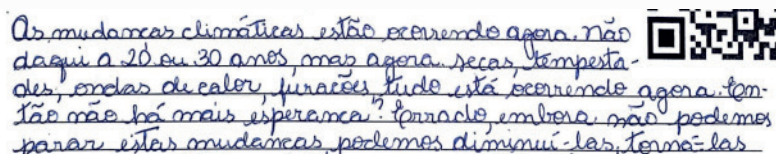 As mudanças climáticas estão ocorrendo agora. não
daqui a 20 ou 30 anos, mas agora. secas, tempesta-
des, ondas de calor, furacões, tudo está ocorrendo agora. En-
tão não há mais esperança? Errado, embora não podemos
parar estas mudanças podemos diminuí-las, torná-las